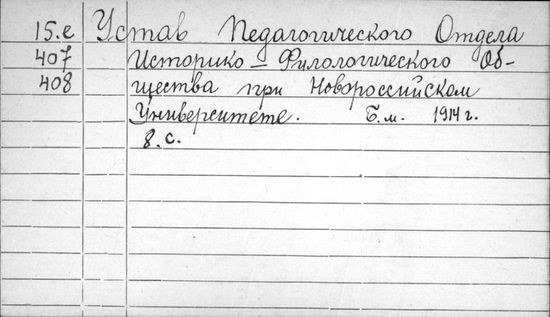 15.е Устав Педагогического Отдела
407 Историко-Филологического Об-
408 щества при Новороссийском
Университете. Б.м. 1914 г.
8 с.